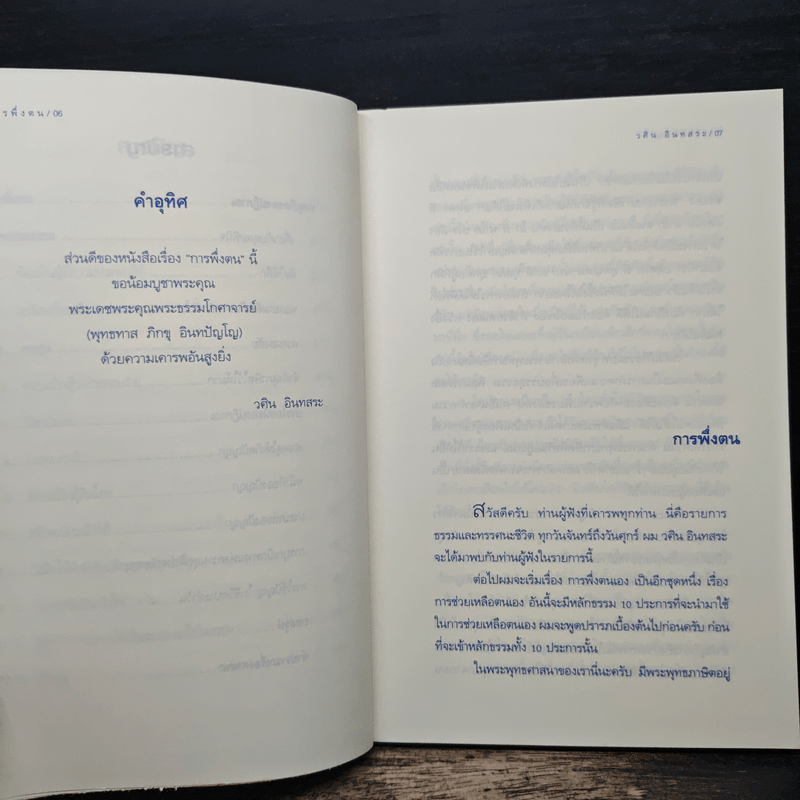 รพึ่งตน/06
คำอุทิศ
ส่วนดีของหนังสือเรื่อง "การพึ่งตน" นี้
ขอน้อมบูชาพระคุณ
พระเดชพระคุณพระธรรมโกศาจารย์
(พุทธทาส ภิกขุ อินทปัญโญ)
ด้วยความเคารพอันสูงยิ่ง
วศิน อินทสระ
วศิน อินทสระ/07
การพึ่งตน
สวัสดีครับ ท่านผู้ฟังที่เคารพทุกท่าน นี่คือรายการ
ธรรมและทรรศนะชีวิต ทุกวันจันทร์ถึงวันศุกร์ ผม วศิน อินทสระ
จะได้มาพบกับท่านผู้ฟังในรายการนี้
ต่อไปผมจะเริ่มเรื่อง การพึ่งตนเอง เป็นอีกชุดหนึ่ง เรื่อง
การช่วยเหลือตนเอง อันนี้จะมีหลักธรรม 10 ประการที่จะนำมาใช้
ในการช่วยเหลือตนเอง ผมจะพูดปรารภเบื้องต้นไปก่อนครับ ก่อน
ที่จะเข้าหลักธรรมทั้ง 10 ประการนั้น
ในพระพุทธศาสนาของเรานี่นะครับ มีพระพุทธภาษิตอยู่